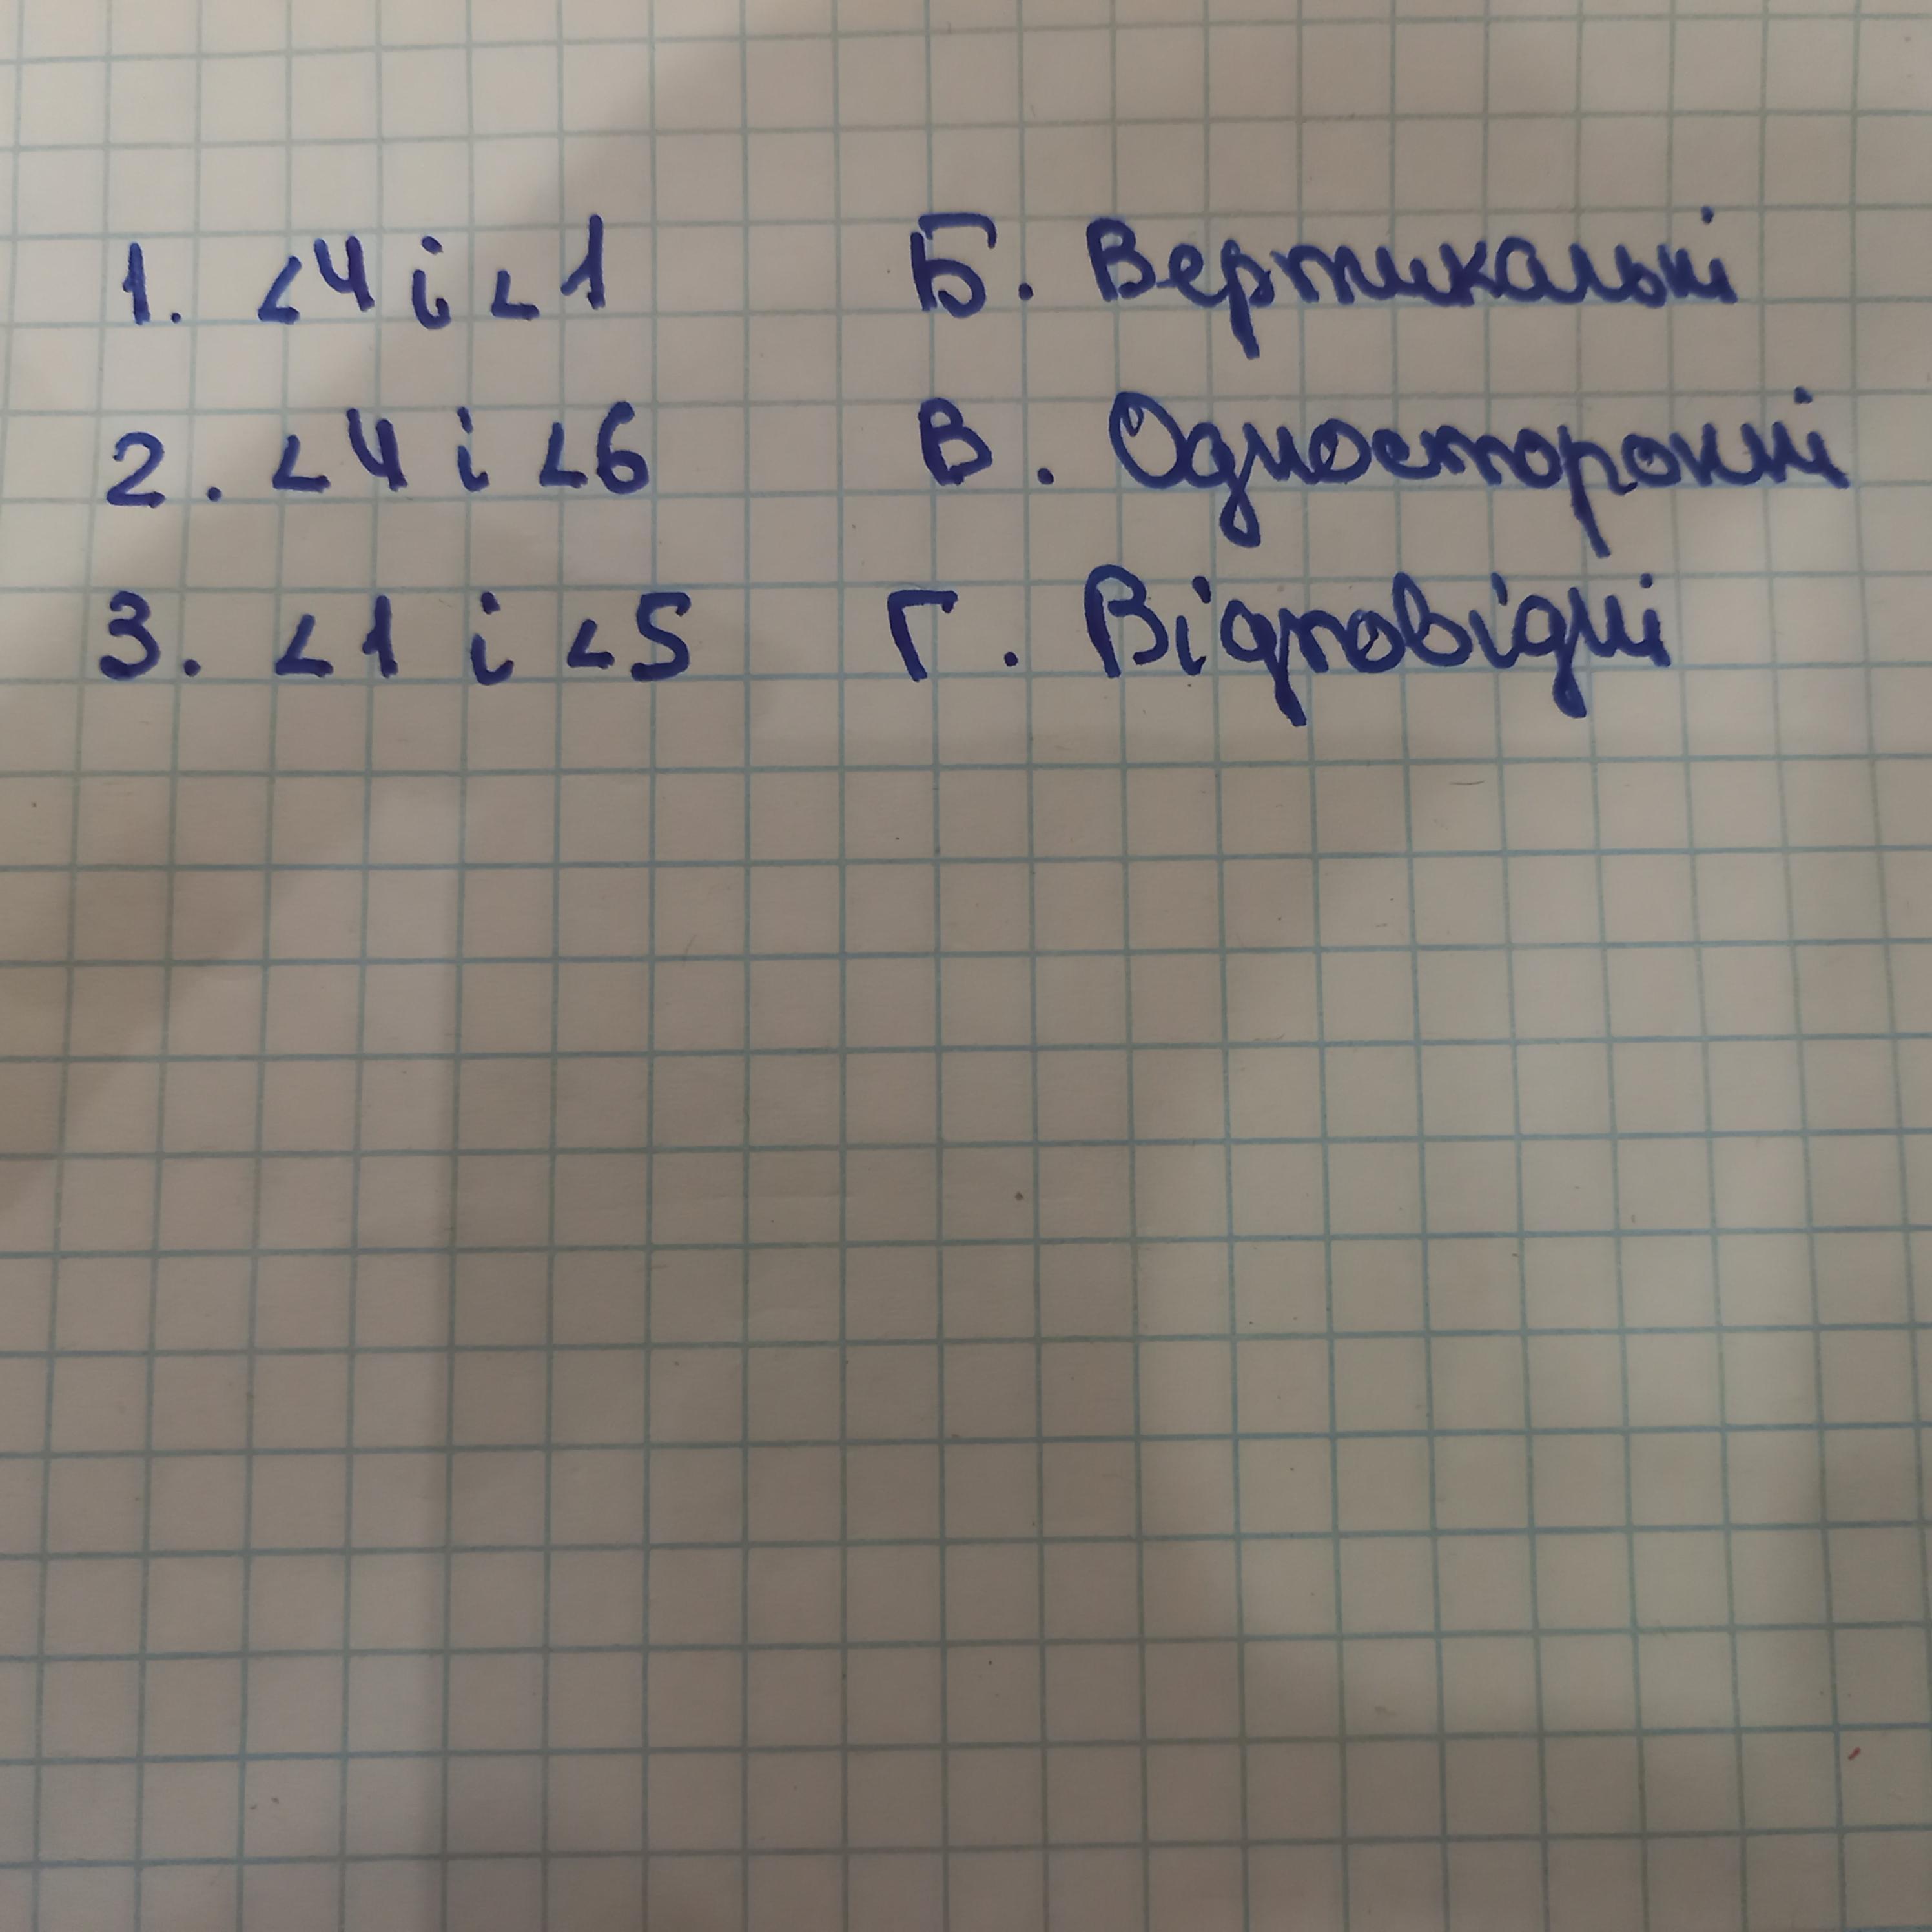 1. ∠4 і ∠1 Б. Вертикальні
2. ∠4 і ∠6 В. Односторонні
3. ∠1 і ∠5 Г. Відповідні